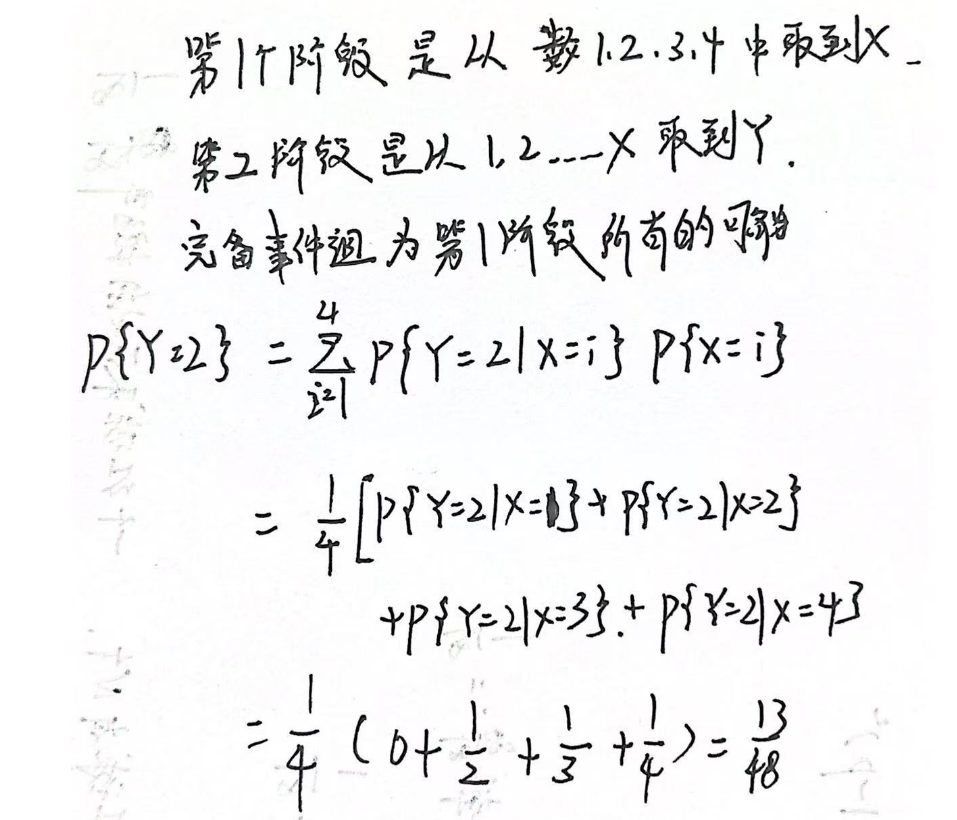 第1个阶段是从数1.2.3.4中取到X.
第2阶段是从1,2....X取到Y.
完备事件组为第1阶段所有的可能
P{Y=2} = \sum_{i=1}^{4} P{Y=2|X=i} P{X=i}
= \frac{1}{4} [P{Y=2|X=1} + P{Y=2|X=2}
+P{Y=2|X=3}.+ P{Y=2|X=4}
= \frac{1}{4} (0+\frac{1}{2}+\frac{1}{3}+\frac{1}{4}) = \frac{13}{48}